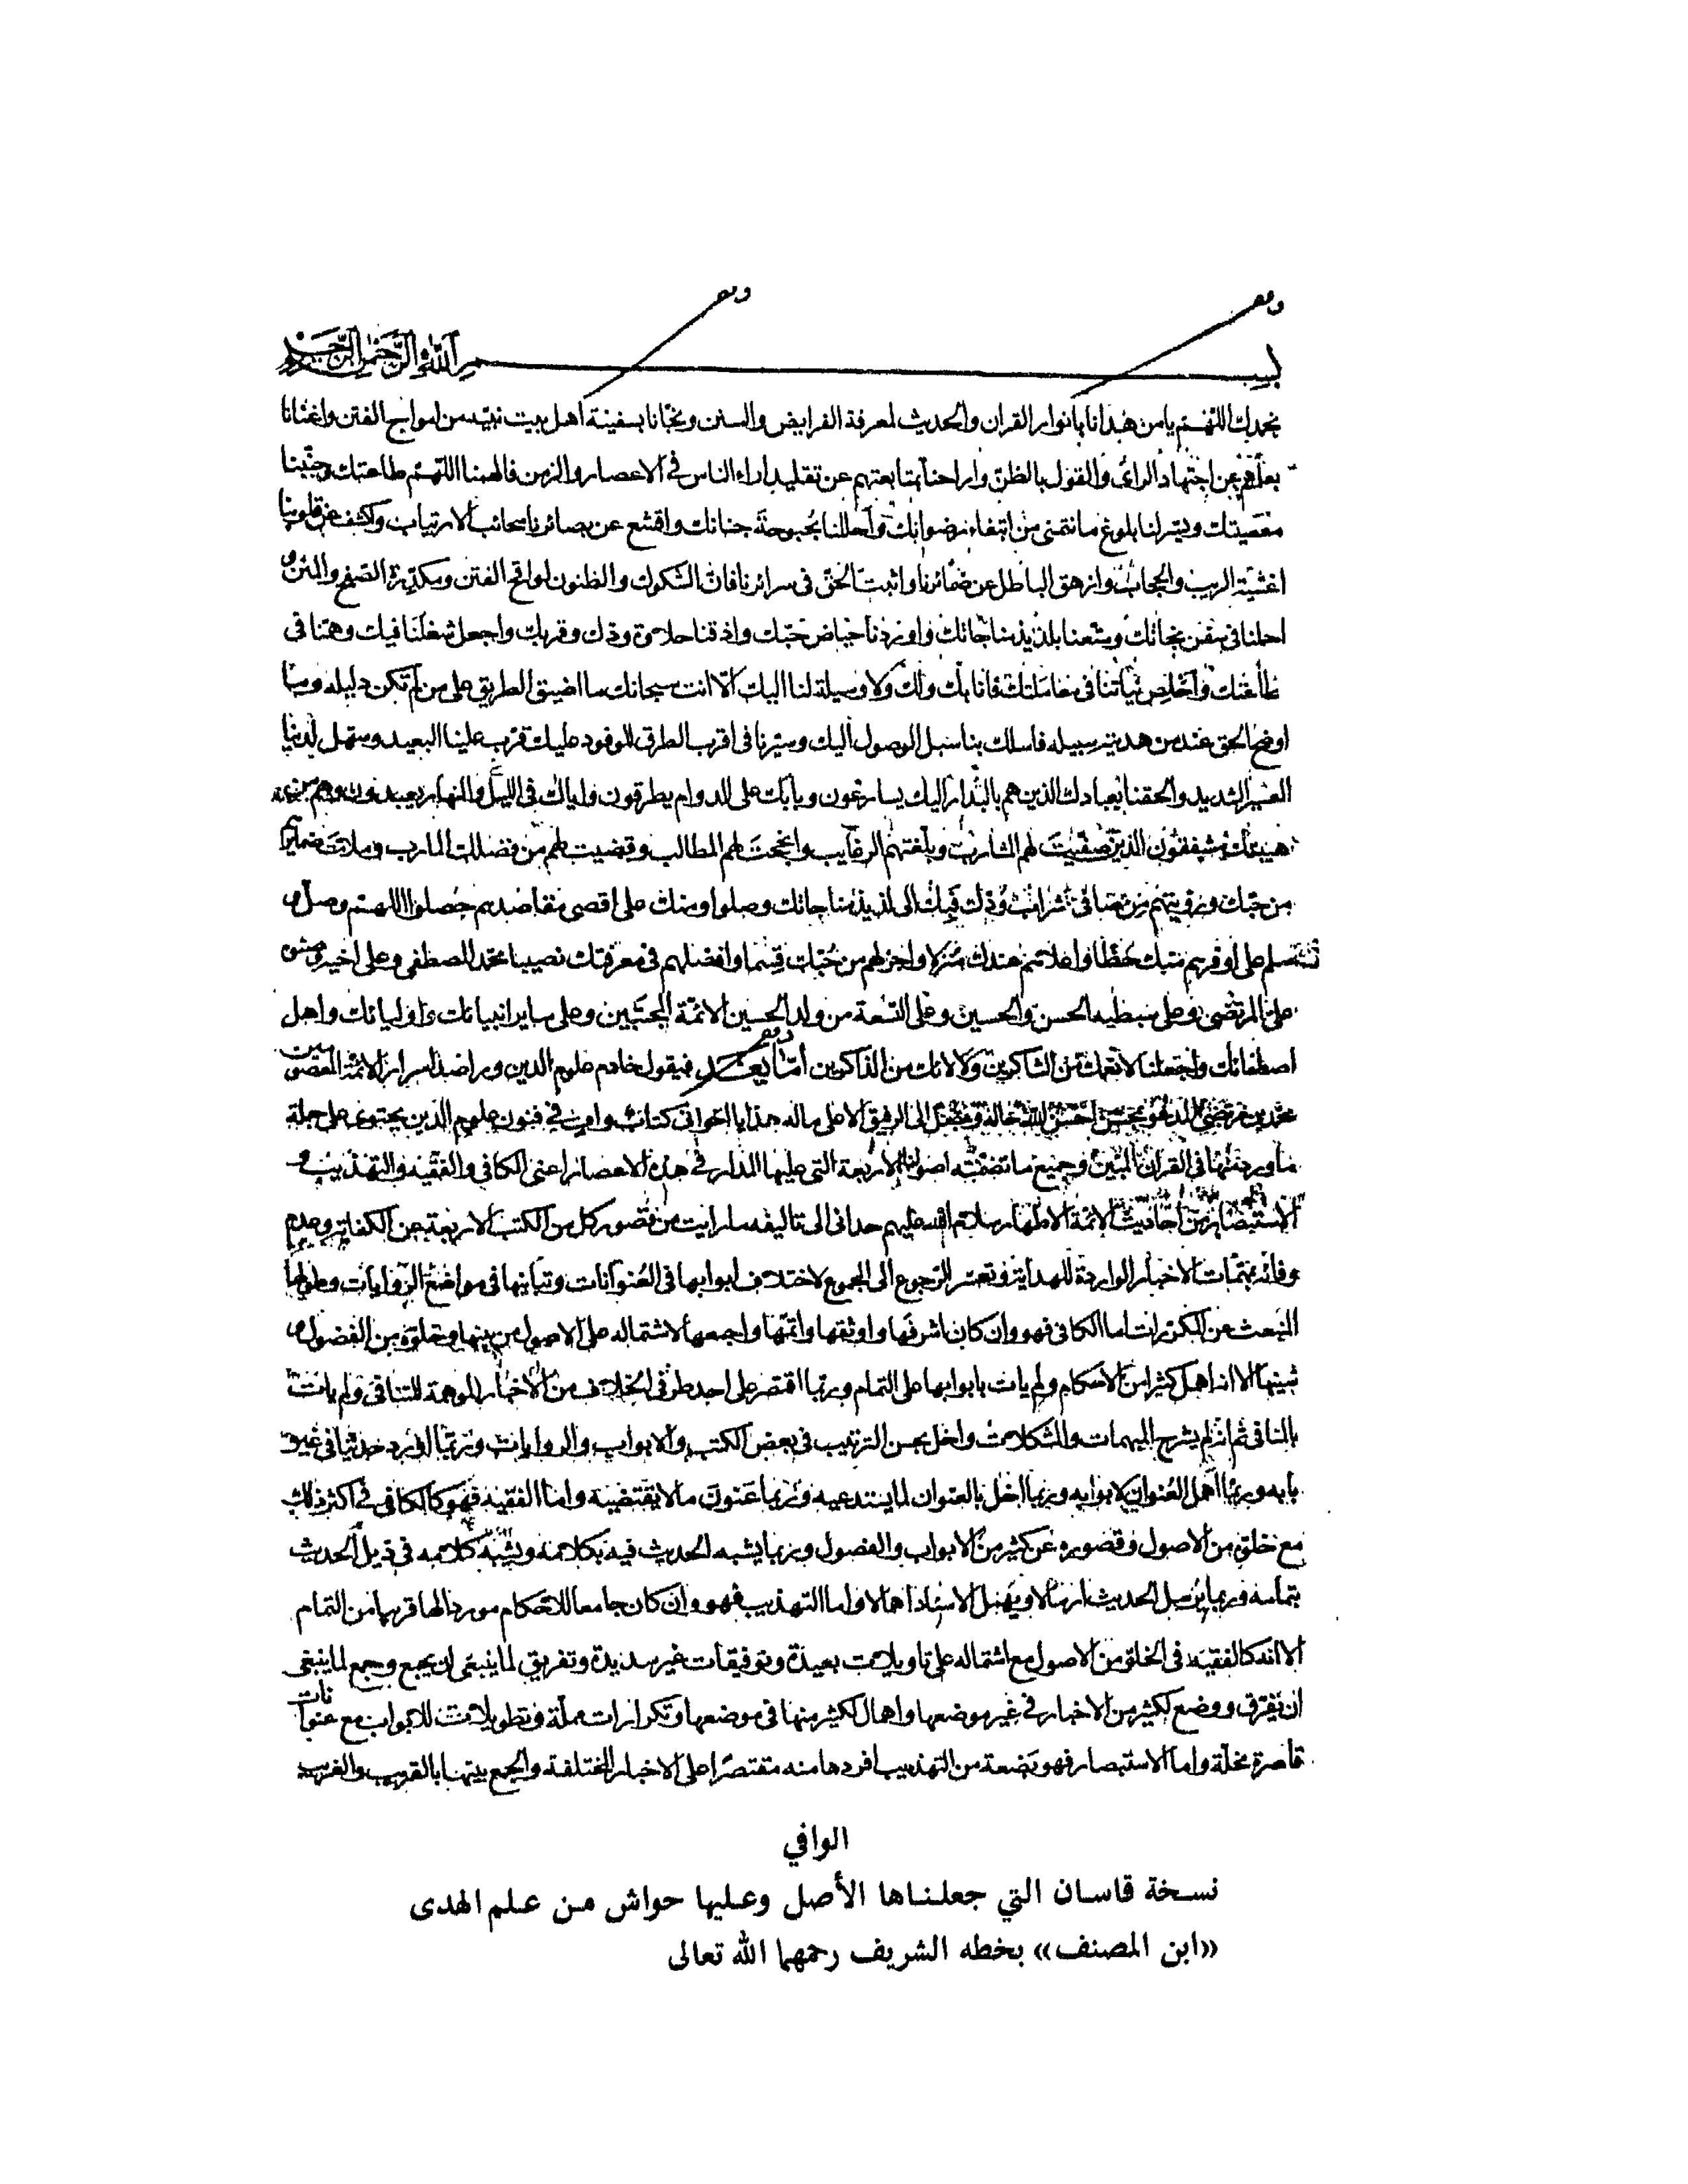 وبه
وبه
بسم الله الرحمن الرحيم
نحمدك اللهم يا من هدانا بانوار القران والحديث لمعرفة الفرايض والسنن ونجانا بسفينة اهل بيت نبيه من امواج الفتن واغنانا
بعلمهم عن اجتهاد الراى والقول بالظن واراحنا بمتابعتهم عن تقليد اراء الناس في الاعصار والزمن فالهمنا اللهم طاعتك وجنبنا
معصيتك ويسر لنا بلوغ ما نتمنى من ابتغاء رضوانك واحللنا بحبوحة جنانك واقشع عن بصائرنا سحائب الارتياب واكشف عن قلوبنا
اغشية الريب والحجاب وازهق الباطل عن ضمائرنا واثبت الحق في سرائرنا فان الشكوك والظنون لواقح الفتن ومكدرة الصفح والمنن و
احملنا في سفن نجاتك ومتعنا بلذيذ مناجاتك واوردنا حياض حبك واذقنا حلاوة ودك وقربك واجعل شغلنا فيك وهمنا في
طاعتك واخلص نياتنا في معاملتك فانا بك ولك ولا وسيلة لنا اليك الا انت سبحانك ما اضيق الطريق على من لم تكن دليله وما
اوضح الحق عند من هديته سبيله فاسلك بنا سبل الوصول اليك وسيرنا في اقرب الطرق للوفود عليك قرب علينا البعيد وسهل لدينا
العسير الشديد والحقنا بعبادك الذين هم بالبدار اليك يسارعون وبابك على الدوام يطرقون واياك في الليل والنهار يعبدون وهم من
هيبتك مشفقون الذين صفيت لهم المشارب وبلغتهم الرغايب وانجحت لهم المطالب وقضيت لهم من فضلك المارب وملات ضمايرهم
من حبك ورويتهم من صافي شراب ودك فبك الى لذيذ مناجاتك وصلوا ومنك على اقصى مقاصدهم حصلوا اللهم وصل و
سلم على اوفرهم منك حظا واعلاهم عندك منزلا واجزلهم من حبك قسما وافضلهم في معرفتك نصيبا محمد المصطفى وعلى اخيه وصنوه
على المرتضى وعلى سبطيه الحسن والحسين وعلى التسعة من ولد الحسين الائمة المجتبين وعلى ساير انبيائك واوليائك واهل
اصطفائك واجعلنا لانعمك من الشاكرين ولالائك من الذاكرين اما بعد فيقول خادم علوم الدين وراصد اسرار الائمة المعصومين
محمد بن مرتضى المدعو بمحسن احسن الله حاله وجعل الى الرفيق الاعلى ماله هذا يا اخواني كتاب واف في فنون علوم الدين يحتوي على جملة
ما ورد منها في القران المبين وجميع ما تضمنته اصولنا الاربعة التي عليها المدار في هذه الاعصار اعني الكافي والفقيه والتهذيب و
الاستبصار من احاديث الائمة الاطهار سلام الله عليهم حداني الى تاليفه ما رايت من قصور كل من الكتب الاربعة عن الكفاية وعدم
وفائه بمهمات الاخبار الواردة للهداية وتعسر الرجوع الى المجموع لاختلاف ابوابها في العنوانات وتباينها في مواضع الروايات وطولها
المنبعث عن المكررات اما الكافي فهو وان كان اشرفها واوثقها واتمها واجمعها لاشتماله على الاصول من بينها وخلوه من الفضول و
شينها الا انه اهمل كثيرا من الاحكام ولم يات بابوابها على التمام وربما اقتصر على احد طرفي الخلاف من الاخبار الموهمة للتنافي ولم يات
بالمنافي ثم انه لم يشرح المبهمات والمشكلات واخل بحسن الترتيب في بعض الكتب والابواب والروايات وربما اورد حديثا في غير
بابه وربما اهمل العنوان لابوابه وربما اخل بالعنوان لما يستدعيه وربما عنون ما لا يقتضيه واما الفقيه فهو كالكافي في اكثر ذلك
مع خلوه من الاصول وقصوره عن كثير من الابواب والفصول وربما يشبه الحديث فيه بكلامه ويشبه كلامه في ذيل الحديث
بتمامه وربما يرسل الحديث ارسالا ويهمل الاسناد اهمالا واما التهذيب فهو وان كان جامعا للاحكام موردا لها قريبا من التمام
الا انه كالفقيه في الخلو من الاصول مع اشتماله على تاويلات بعيدة وتوفيقات غير سديدة وتفريق لما ينبغي ان يجمع وجمع لما ينبغي
ان يفرق ووضع لكثير من الاخبار في غير موضعها واهمال لكثير منها في موضعها وتكرارات مملة وتطويلات للابواب مع عنوانات
قاصرة مخلة واما الاستبصار فهو بضعة من التهذيب افردها منه مقتصرا على الاخبار المختلفة والجمع بينها بالقريب والغريب
الوافي
نسخة قاسان التي جعلناها الأصل وعليها حواش من علم الهدى
«ابن المصنف» بخطه الشريف رحمهما الله تعالى